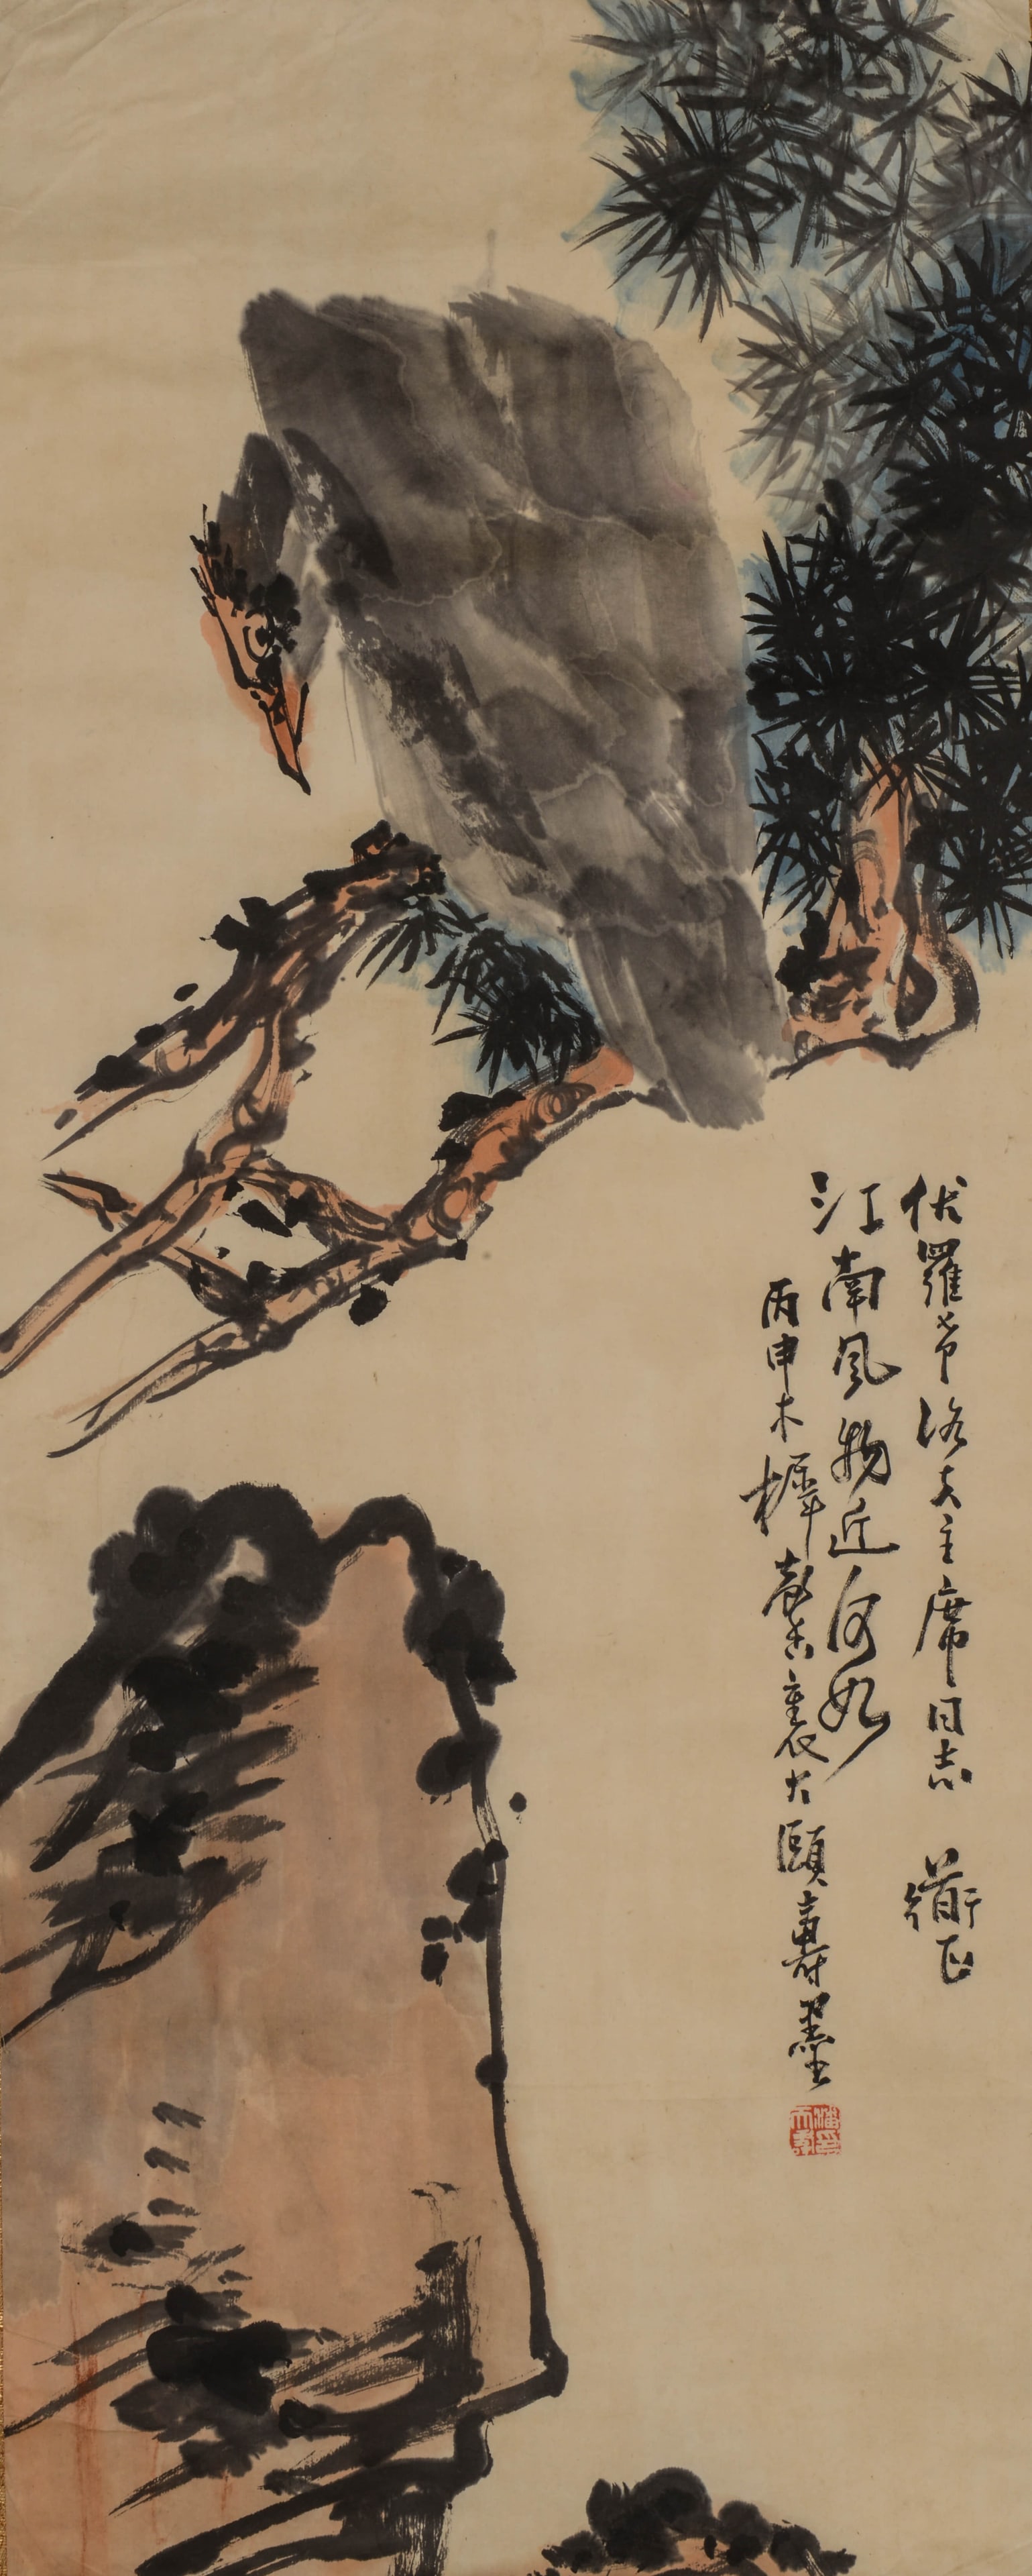 伏羅希洛夫主席同志 衜正
江南風物近何如
丙申木樨馨香裏大頤壽墨
潘天壽印